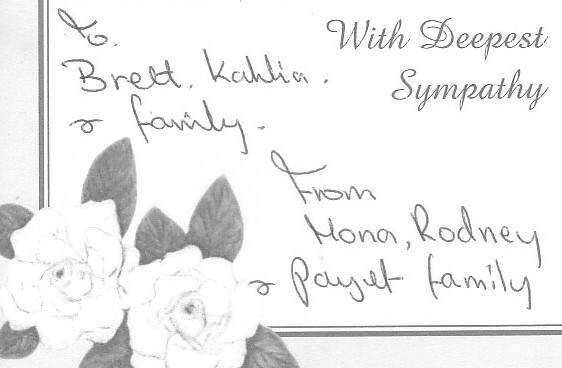 With Deepest
Sympathy
To.
Brett. Kahlia.
& family.
From
Mona, Rodney
& Payet family